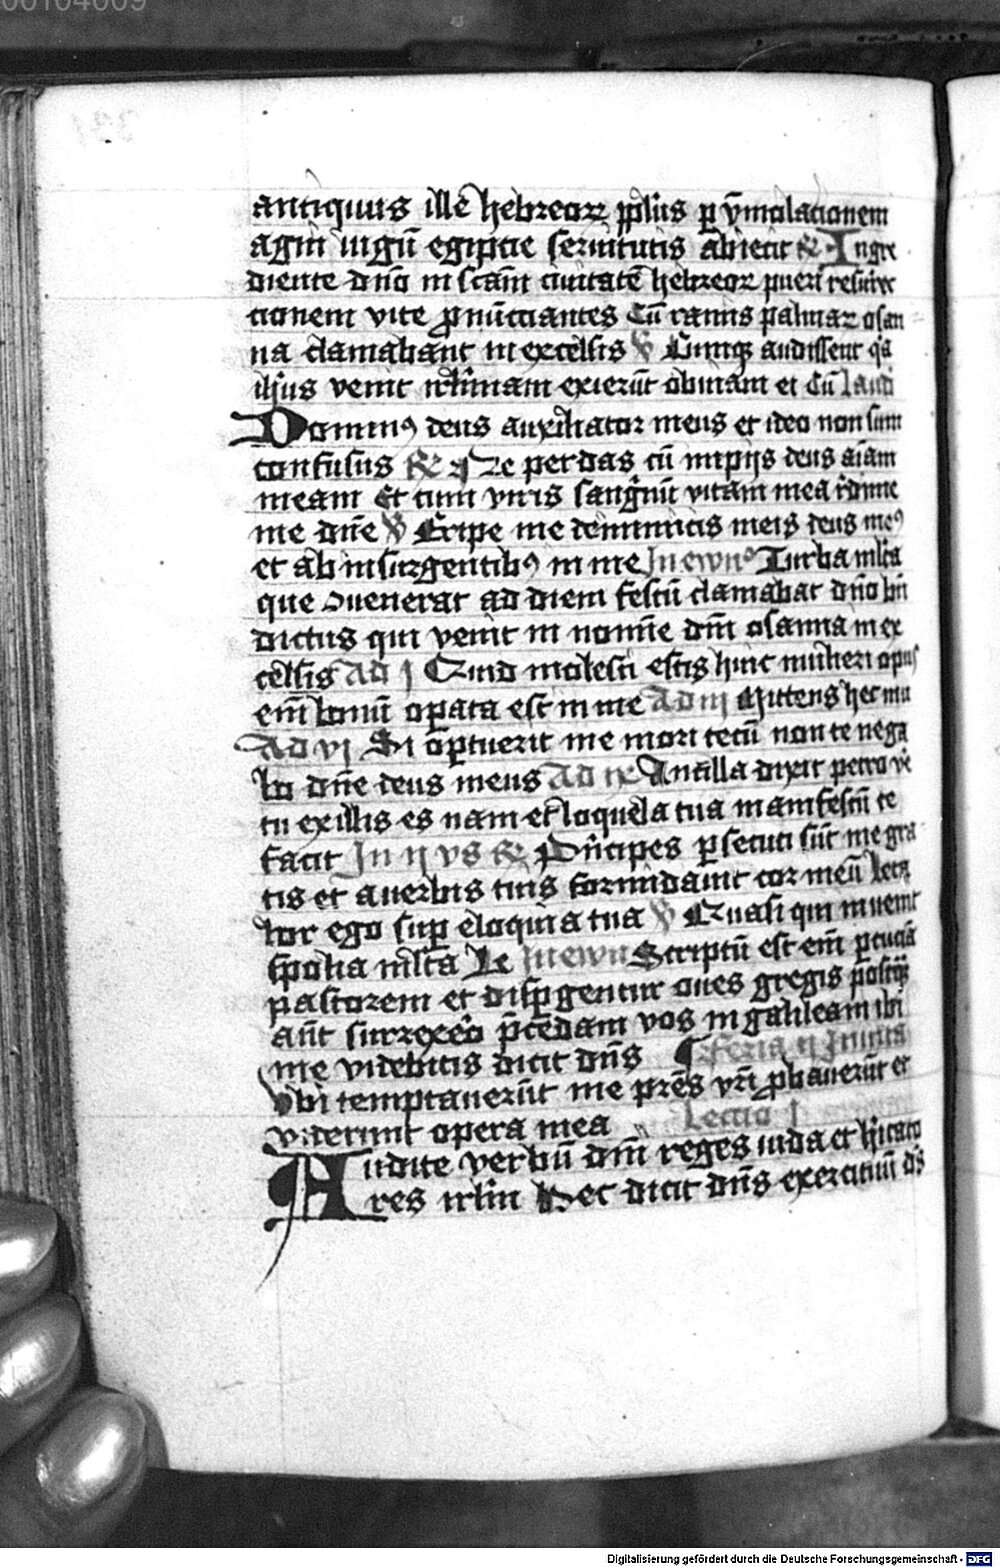 00104009
antiquus ille hebreorꝝ pplus ꝑ ẏmolacionem
agni iugū egipcie seruitutis abiecit ℟ Ingre
diente dn̄o in scām ciuitatē hebreoꝝ pueri resurrec
cionem vite ꝓnūcciantes Cū ramis palmaꝝ osan
na clamabant in excelsis ℣ Cumqꝫ audissent qa
ihus venit irl̄imam exierūt obuiam ei Cū Laud
Dominꝰ deus auxiliator meus et ideo non sum
confusus ℟ Ne perdas cū impijs deus aīam
meam Et cum viris sangnū vitam meā redime
me dn̄e ℣ Eripe me de inimicis meis deus meꝰ
et ab insurgentibꝰ in me In ewnº Turba ml̄ta
que ↄuenerat ad diem festū clamabat dn̄o bn̄
dictus qui venit in nomīe dn̄i osanna in ex
celsis Ad j Quid molesti estis huic mulieri opus
em̄ bonū operata est in me Ad iij Mittens hec mu
Ad vj Si oportuerit me mori tecū non te nega
bo dn̄e deus meus Ad ix Ancilla dixit petro ve
tu ex illis es nam et loquela tua manifestū te
facit In ij vs ℟ Pn̄cipes ꝑsecuti sūt me gra
tis et a verbis tuis formidauit cor meū leta
bor ego sup eloquia tua ℣ Quasi qui inuenit
spolia ml̄ta Le In ewn Scriptū est em̄ ꝑcuciā
pastorem et dispgentur oues gregis postqꝫ
aūt surrexero p̄cedam vos in galileam ibi
me videbitis dicit dn̄s Feria ij Inuita
Vbi temptauerūt me pr̄es vr̄i ꝓbauerūt et
viderunt opera mea Lectio j
Audite verbū dn̄i reges iuda et hitato
res irl̄m Hec dicit dn̄s exercituū ds̄
Digitalisierung gefördert durch die Deutsche Forschungsgemeinschaft - DFG